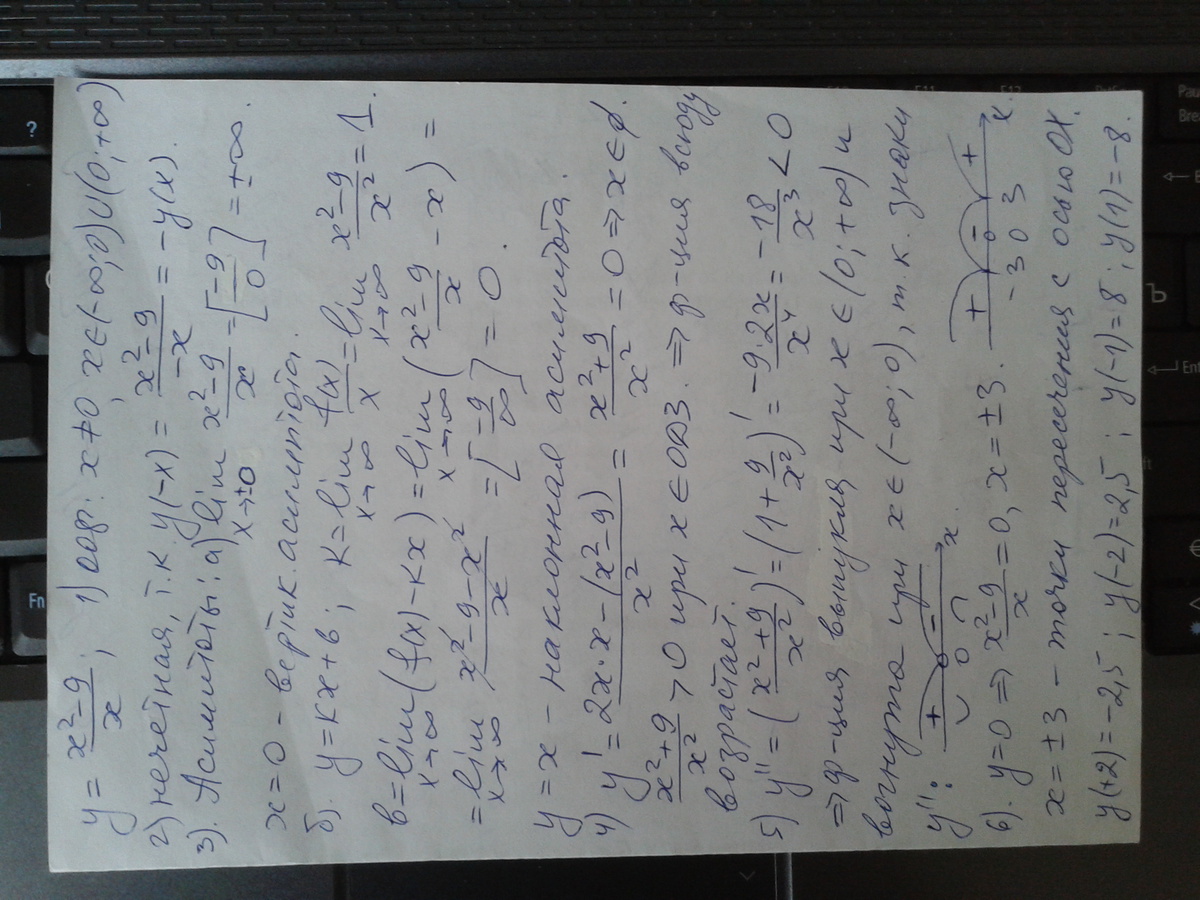 y = (x²-9)/x ; 1) оод: x≠0, x∈(-∞;0)∪(0;+∞)
2) нечетная, т.к y(-x) = (x²-9)/(-x) = -y(x).
3). Асимптоты: а) lim x→±0 (x²-9)/x = [-9/0] = ±∞.
x=0 - вертик. асимптота.
б). y=kx+b ; k=lim x→∞ f(x)/x = lim x→∞ (x²-9)/x² = 1.
b=lim x→∞ (f(x)-kx) = lim x→∞ ((x²-9)/x - x) =
= lim x→∞ (x²-9-x²)/x = [-9/∞] = 0.
y=x - наклонная асимптота.
4) y' = (2x·x-(x²-9))/x² = (x²+9)/x² = 0 ⇒ x∈∅.
(x²+9)/x² > 0 при x∈ОДЗ. ⇒ ф-ция всюду
возрастает.
5) y'' = ((x²+9)/x²)' = (1+9/x²)' = -9·2x/x⁴ = -18/x³ < 0
⇒ ф-ция выпукла при x∈(0;+∞) и
вогнута при x∈(-∞;0), т.к. знаки
y'': + 0 - x
6). y=0 ⇒ (x²-9)/x = 0, x=±3. + - + -3 0 3 x.
x=±3 - точки пересечения с осью OX.
y(+2)=-2,5 ; y(-2)=2,5 ; y(-1)=8 ; y(1)=-8.
?
Fn
F11
F12
Pau
Brea
Ъ